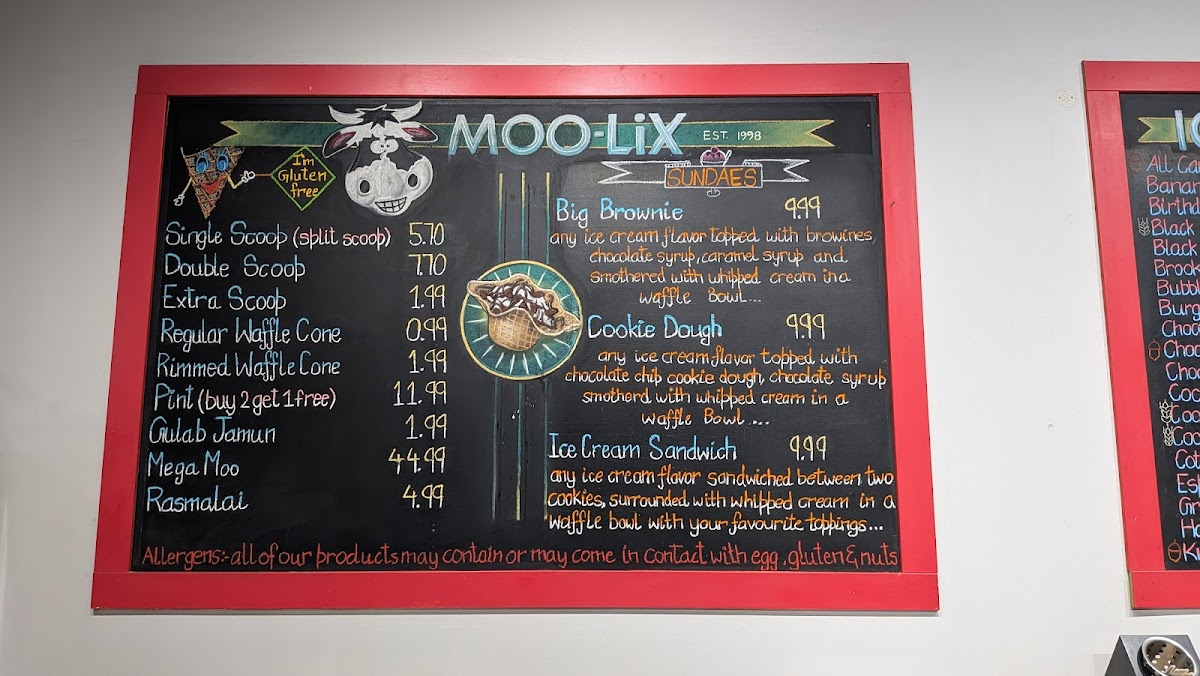 MOO-LiX EST. 1998
I'm
Gluten
free
Single Scoop (split scoop) 5.70
Double Scoop 7.70
Extra Scoop 1.99
Regular Waffle Cone 0.99
Rimmed Waffle Cone 1.99
Pint (buy 2 get 1 free) 11.99
Gulab Jamun 1.99
Mega Moo 44.99
Rasmalai 4.99
SUNDAES
Big Brownie 9.99
any ice cream flavor topped with browines,
chocolate syrup, caramel syrup and
smothered with whipped cream in a
waffle Bowl...
Cookie Dough 9.99
any ice cream flavor topped with
chocolate chip cookie dough, chocolate syrup
smotherd with whipped cream in a
waffle Bowl...
Ice Cream Sandwich 9.99
any ice cream flavor sandwiched between two
cookies, surrounded with whipped cream in a
waffle bowl with your favourite toppings...
Allergens:- all of our products may contain or may come in contact with egg, gluten & nuts
All Ca
Banan
Birthd
Black
Black
Brook
Bubbl
Burg
Choc
Choc
Choc
Coo
Coo
Coo
Cot
Es
Gr
Ho
Ki